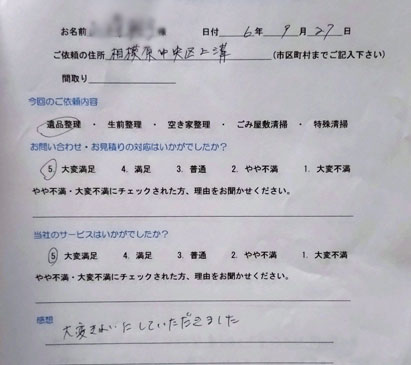 お名前 様 日付 6年 9月 27日
ご依頼の住所 相模原中央区上溝 (市区町村までご記入下さい)
間取り
今回のご依頼内容
遺品整理 ・ 生前整理 ・ 空き家整理 ・ ごみ屋敷清掃 ・ 特殊清掃
お問い合わせ・お見積りの対応はいかがでしたか?
5. 大変満足 4. 満足 3. 普通 2. やや不満 1. 大変不満
やや不満・大変不満にチェックされた方、理由をお聞かせください。
当社のサービスはいかがでしたか?
5 大変満足 4. 満足 3. 普通 2. やや不満 1. 大変不満
やや不満・大変不満にチェックされた方、理由をお聞かせください。
感想
大変きれいにしていただきました